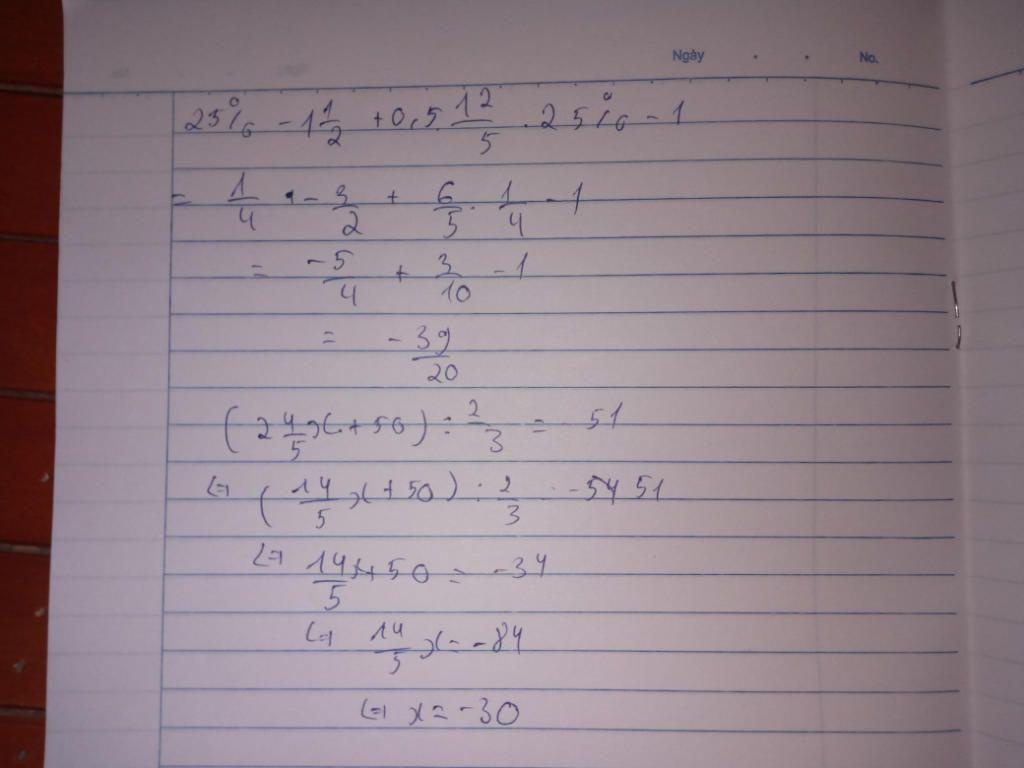 Ngày . . No.
25% - 1 1/2 + 0,5 . 12/5 . 25% - 1
= 1/4 - 3/2 + 6/5 . 1/4 - 1
= -5/4 + 3/10 - 1
= -39/20
(2 4/5 x + 50) : 2/3 = 51
⇔ (14/5 x + 50) : 2/3 -54 51
⇔ 14/5 x + 50 = -34
⇔ 14/5 x = -84
⇔ x = -30